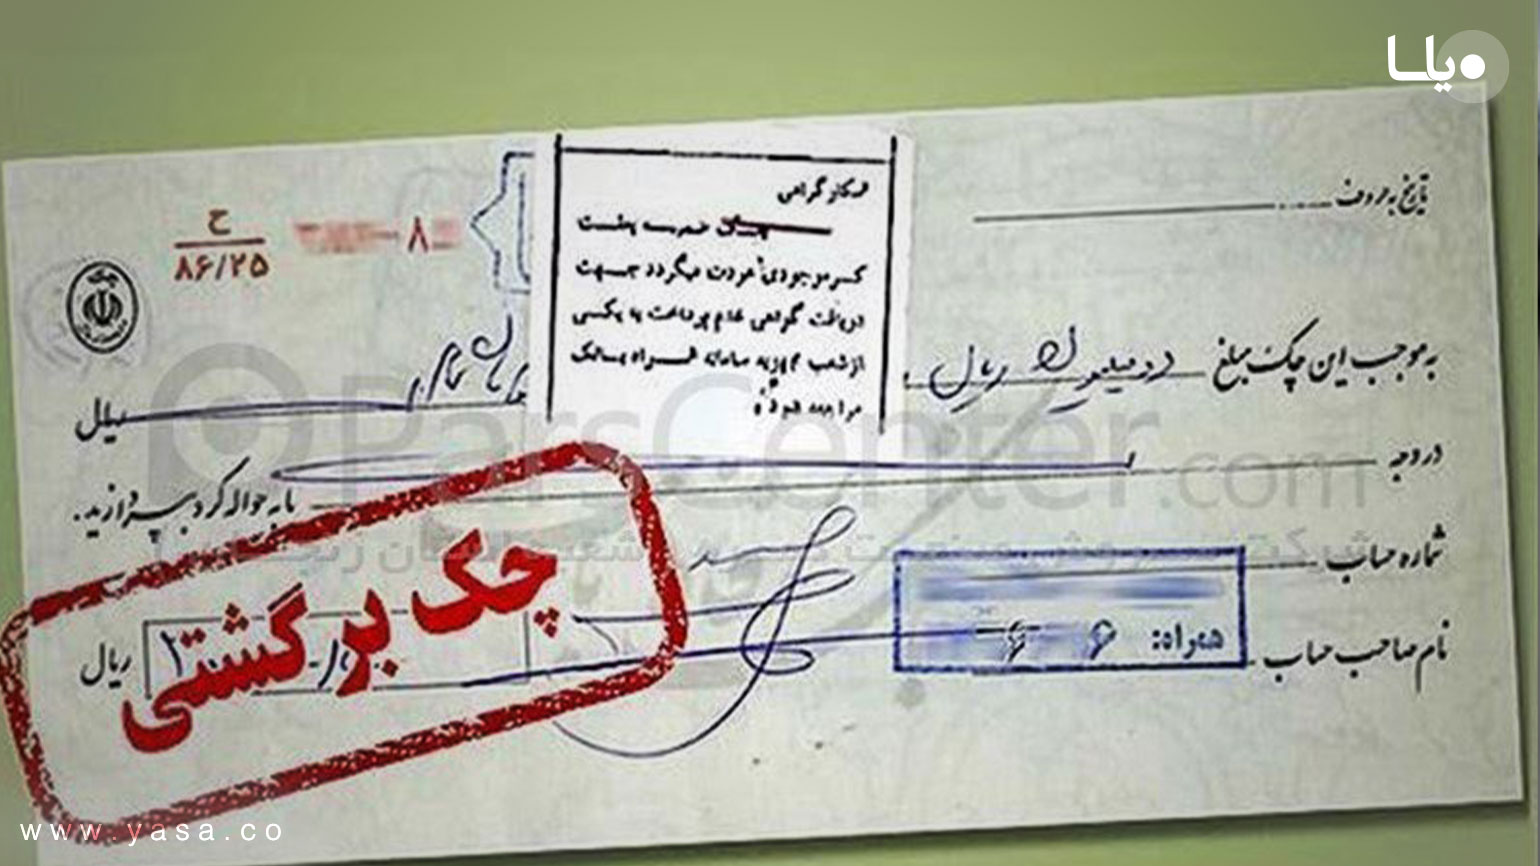 یاسا
تاریخ به حروف
همکار گرامی
چک ضمیمه بعلت
کسر موجودی عودت میگردد جهت
دریافت گواهی عدم پرداخت به یکی
از شعب مجهز به سامانه همراه بانک
مراجعه شود
۸
ح
۸۶/۲۵
به موجب این چک مبلغ دو میلیون ریال تمام ریال
در وجه
یا به حواله کرد بپردازید.
ParsCenter.com
شماره حساب
همراه:
نام صاحب حساب
ریال
چک برگشتی
www.yasa.co